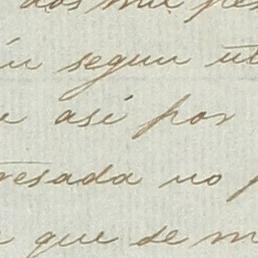 dos mil pes
segun
así por
resada no p
que se m